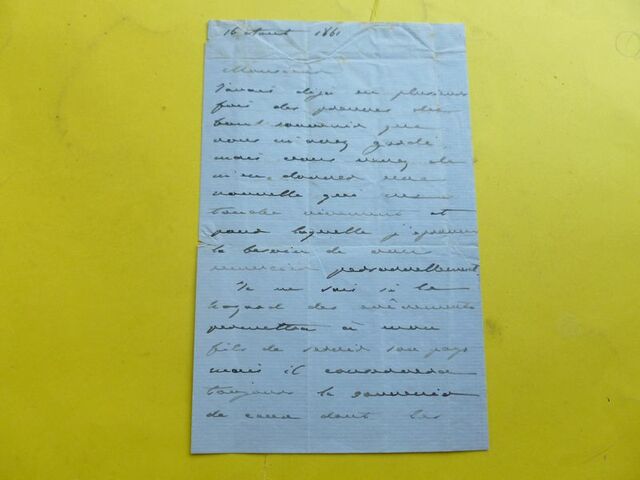 16 Aout 1861
Monsieur
J'avais déja eu plusieurs
fois des preuves du
bon souvenir que
vous m'avez gardé
mais vous venez de
m'en donner une
nouvelle qui me
touche vivement et
pour laquelle j'éprouve
le besoin de vous
remercier personnellement.
Je ne sais si le
hazard des évènements
permettra à mon
fils de servir son pays
mais il conservera
toujours le souvenir
de ceux dont les